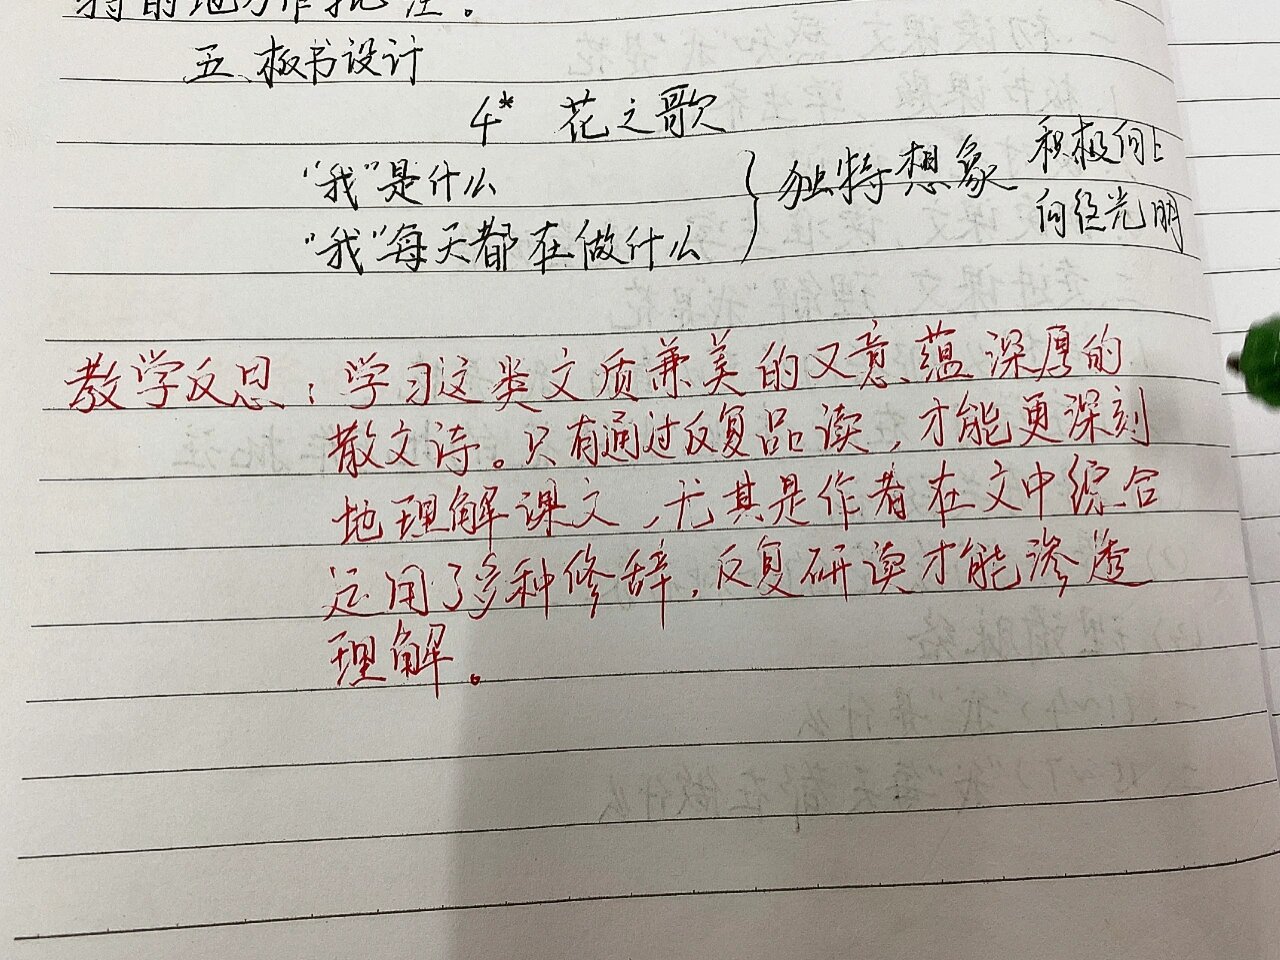 特的地方作批注。
五、板书设计
4* 花之歌
“我”是什么
“我”每天都在做什么
独特想象
积极向上
向往光明
教学反思：学习这类文质兼美的又意蕴深厚的
散文诗。只有通过反复品读，才能更深刻
地理解课文，尤其是作者在文中综合
运用了多种修辞，反复研读才能渗透
理解。